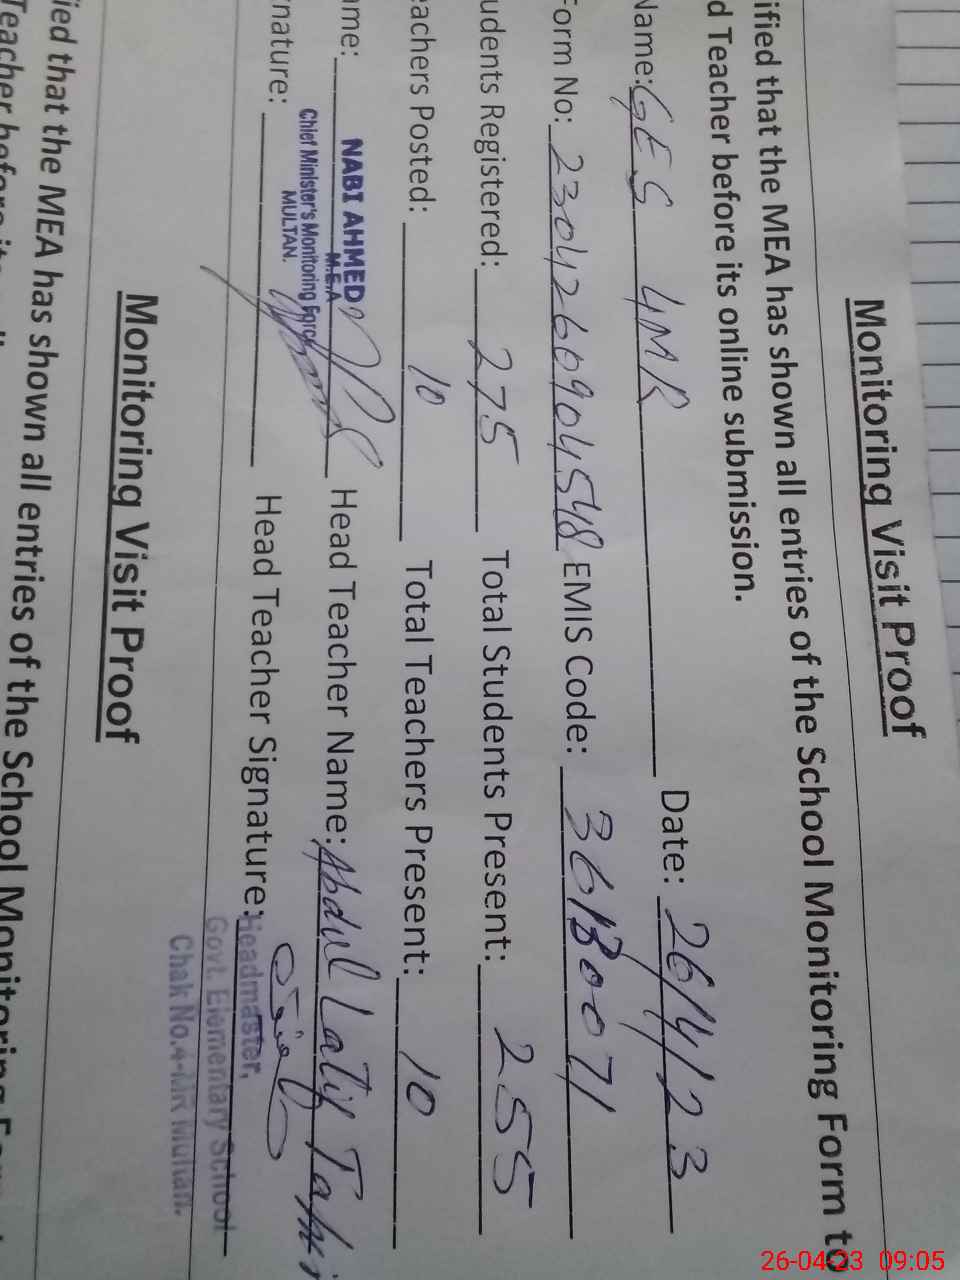 Monitoring Visit Proof
ified that the MEA has shown all entries of the School Monitoring Form to
d Teacher before its online submission.
Name: GES 4MR Date: 26/4/23
Form No: 2304266904548 EMIS Code: 36130071
udents Registered: 275 Total Students Present: 255
eachers Posted: 10 Total Teachers Present: 10
ame: NABI AHMED Head Teacher Name: Abdul Latif Tahi
M.E.A
Chief Minister's Monitoring Force
MULTAN.
nature: Head Teacher Signature:
Headmaster,
Govt. Elementary School
Chak No.4-MR Multan.
Monitoring Visit Proof
ied that the MEA has shown all entries of the School Monitoring Form
Teacher before its
26-04-23 09:05